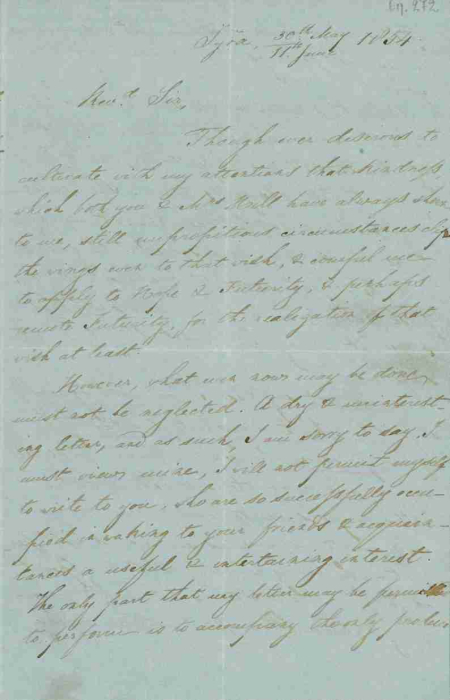 Syra, 30th May / 11th June 1854.
Revd. Sir,
Though ever desirous to
cultivate with my attentions that kindness
which both you & Mrs. Hill have always shown
to me, still unpropitious circumstances clip
the wings even to that wish, & compel me
to apply to Hope & Futurity, & perhaps
remote Futurity, for the realization of that
wish at least.
However, what ever now may be done,
must not be neglected. A dry & uninterest-
ing letter, and as such, I am sorry to say I
must view mine, I will not permit myself
to write to you, who are so successfully occu-
pied in making to your friends & acquain-
tances a useful & entertaining interest.
The only part that my letter may be permitted
to perform is to accompany